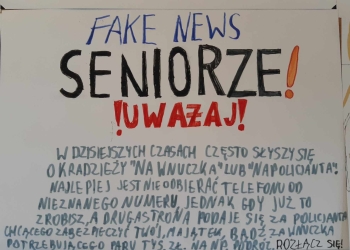 FAKE NEWS
SENIORZE!
!UWAŻAJ!
W DZISIEJSZYCH CZASACH CZĘSTO SŁYSZY SIĘ
O KRADZIEŻY "NA WNUCZKA" LUB "NA POLICJANTA".
NAJLEPIEJ JEST NIE ODBIERAĆ TELEFONU OD
NIEZNANEGO NUMERU, JEDNAK GDY JUŻ TO
ZROBISZ, A DRUGA STRONA PODAJE SIĘ ZA POLICJANTA
CHCĄCEGO ZABEZPIECZYĆ TWÓJ MAJĄTEK, BĄDŹ ZA WNUCZKA
POTRZEBUJĄCEGO PARU TYS. ZŁ. NA NP. ROZŁĄCZ SIĘ